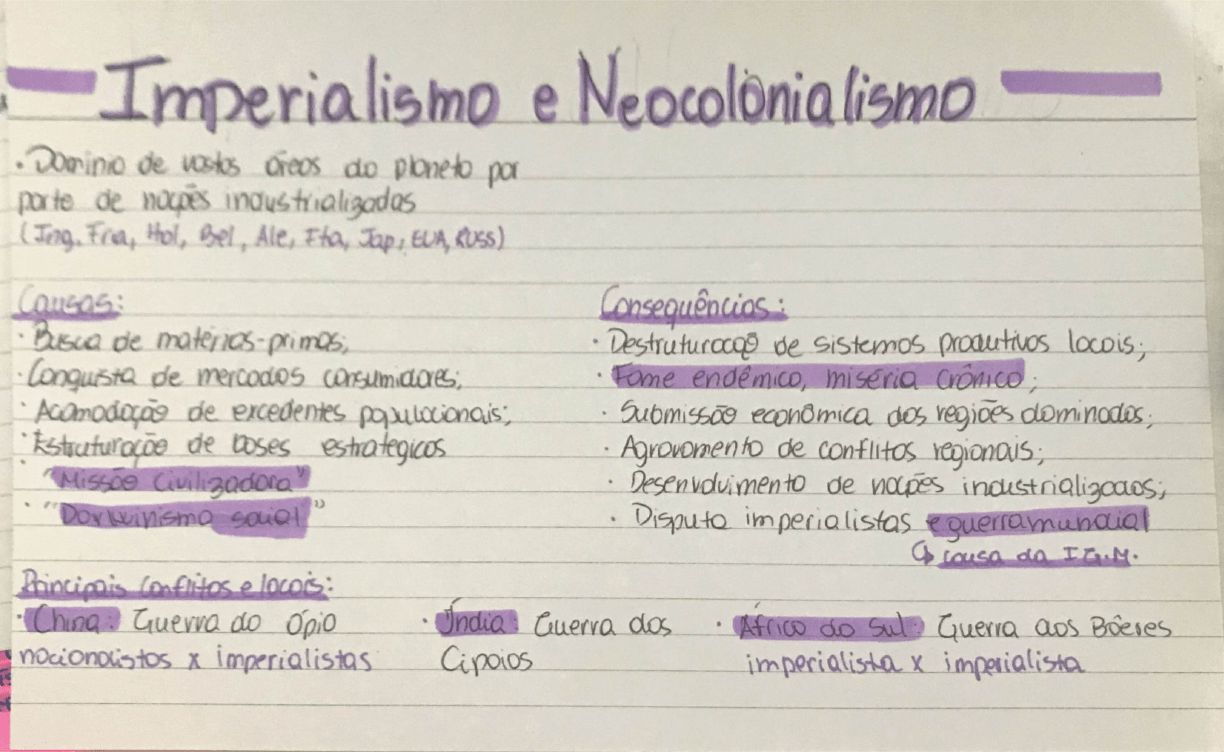 Imperialismo e Neocolonialismo
• Domínio de vastas áreas do planeta por
parte de nações industrializadas
(Ing, Fra, Hol, Bel, Ale, Ita, Jap, EUA, RUSS)
Causas:
• Busca de matérias-primas;
• Conquista de mercados consumidores;
• Acomodação de excedentes populacionais;
• Estruturação de bases estratégicas
• "Missão Civilizadora"
• "Darwinismo social"
Consequências:
• Destruturação de sistemas produtivos locais;
• Fome endêmica, miséria crônica;
• Submissão econômica das regiões dominadas;
• Agravamento de conflitos regionais;
• Desenvolvimento de nações industrializadas;
• Disputa imperialistas e guerra mundial
↳ causa da I G.M.
Principais conflitos e locais:
• China: Guerra do Ópio
nacionalistas x imperialistas
• Índia: Guerra dos
Cipaios
• África do Sul: Guerra dos Bôeres
imperialista x imperialista